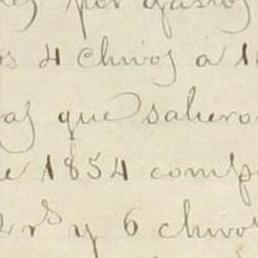 por gastos
4 chivos a 1
que saliero
e 1854 comp
y 6 chivos